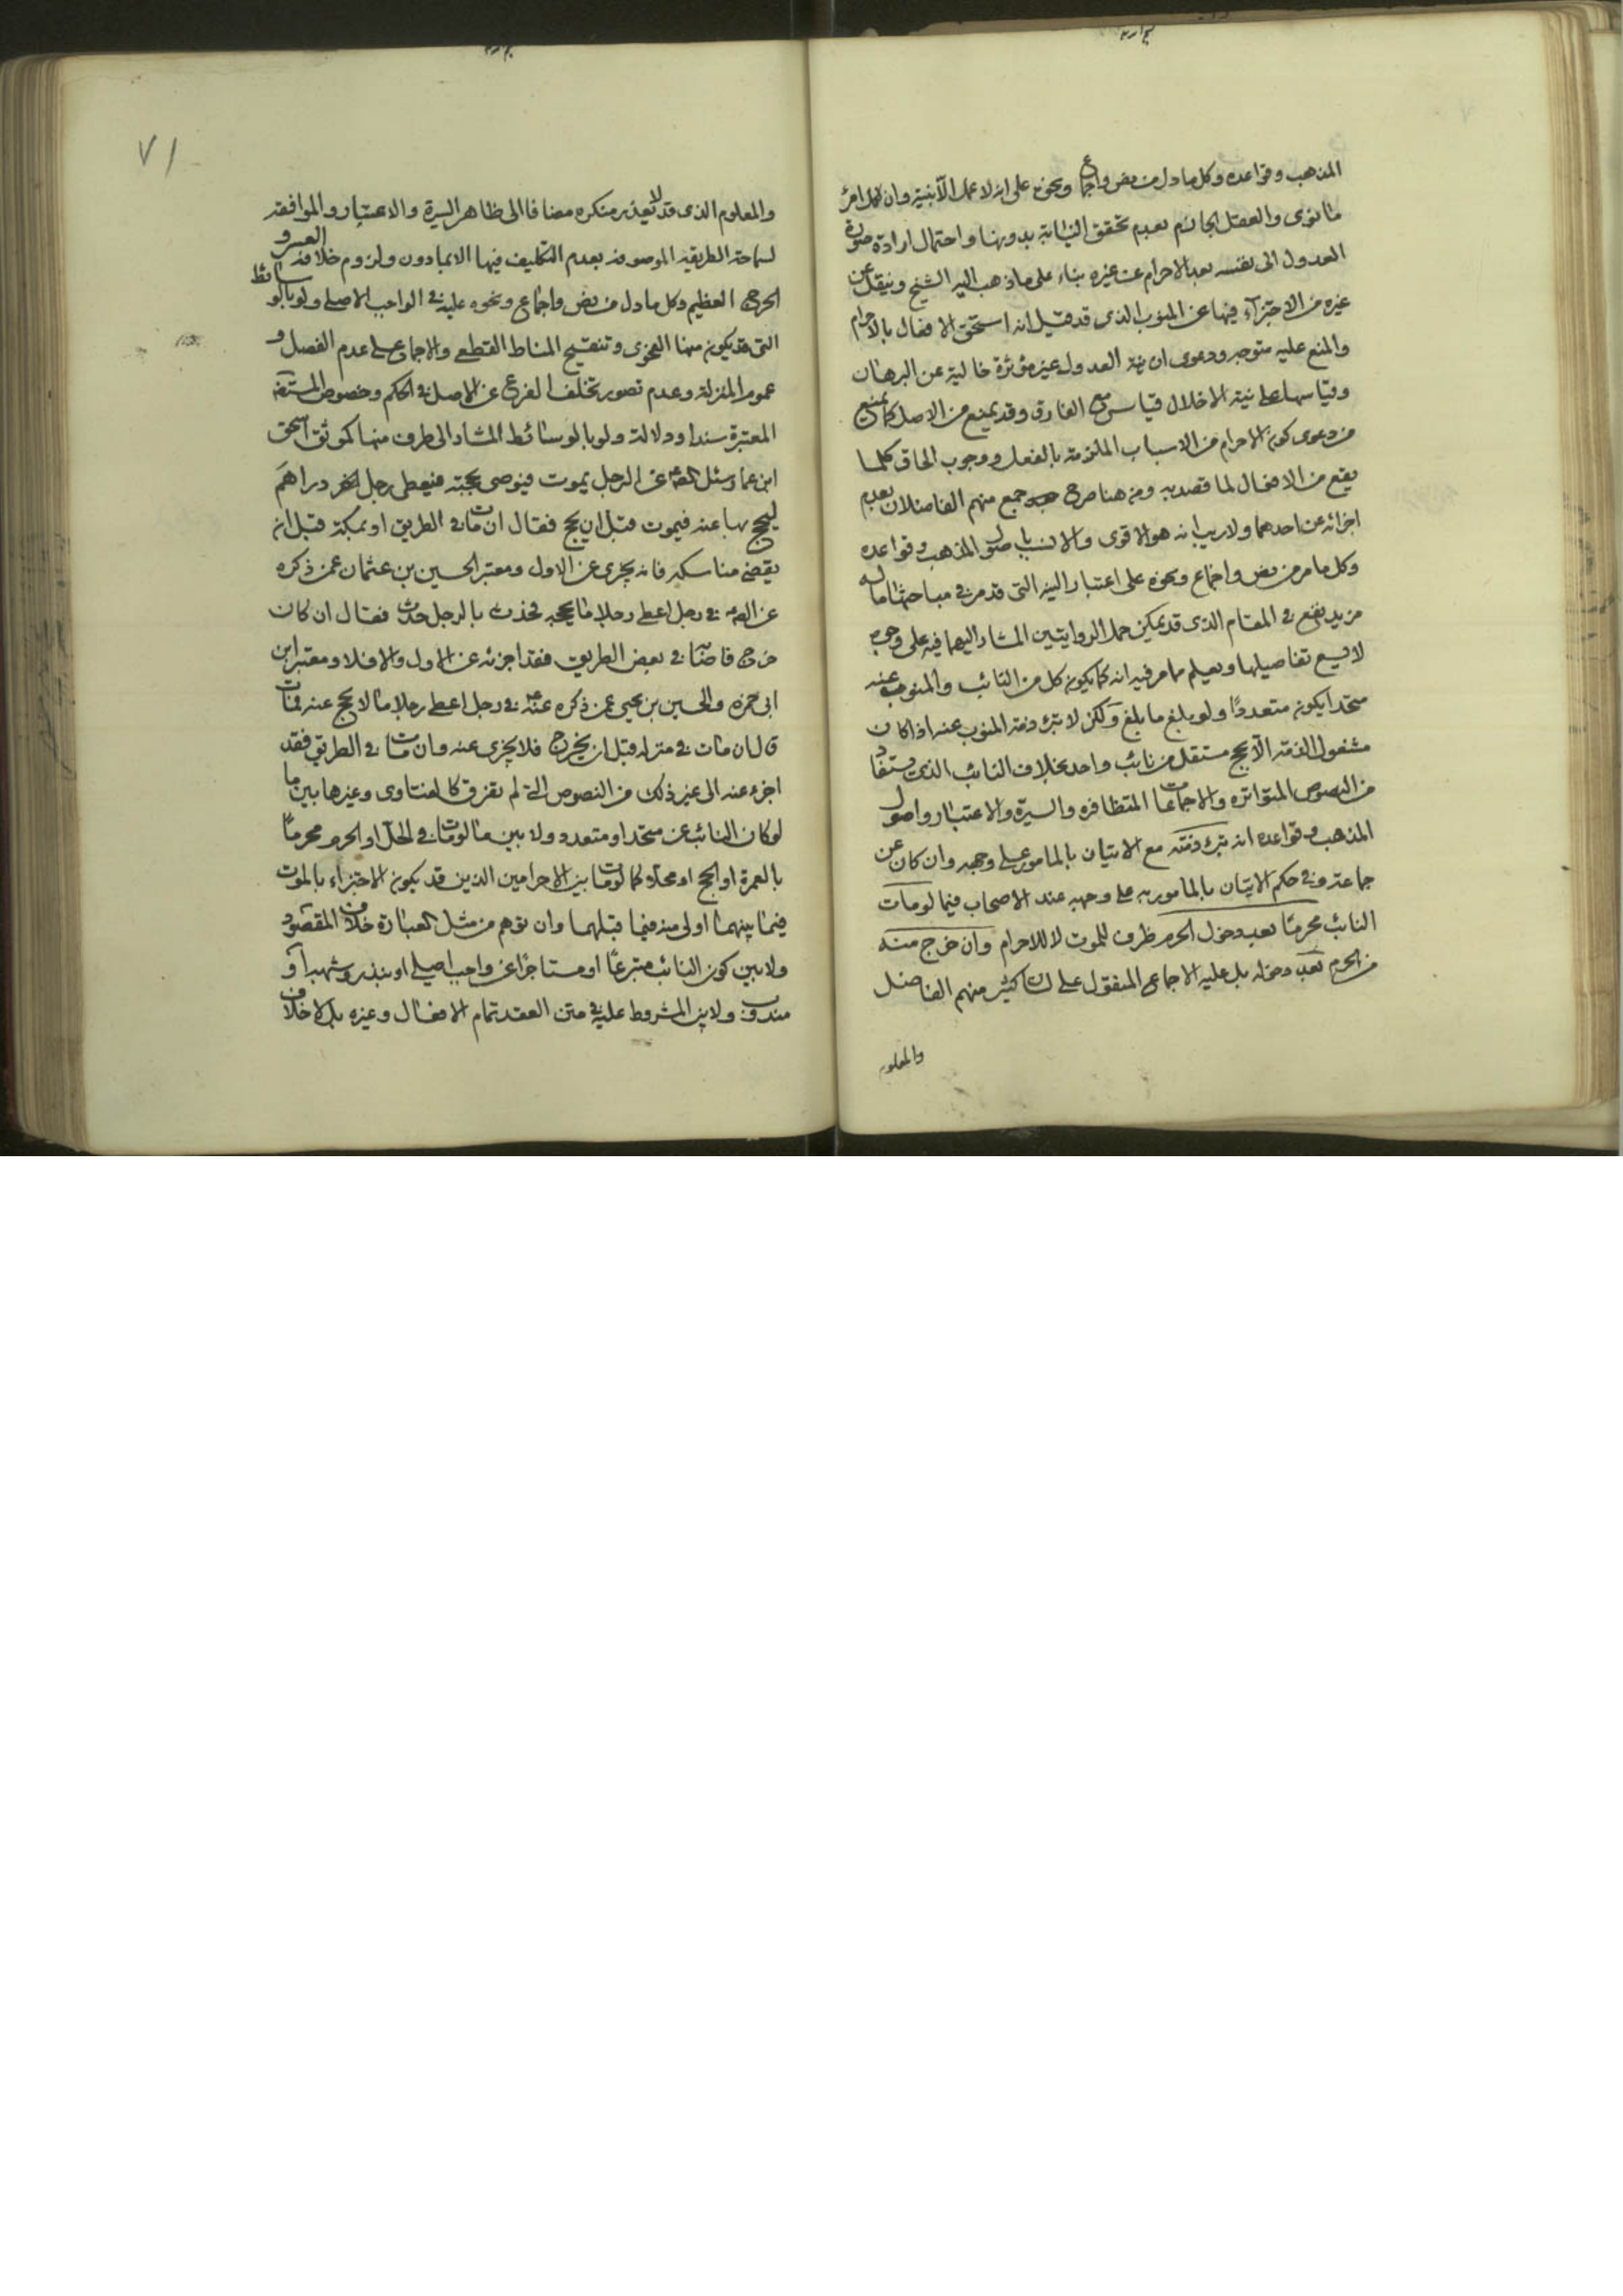 المذهب وقواعده وكل ما دل من نص واجماع ونحوه على انه لا عمل الا بنية وان لكل امرئ
ما نوى والعقل الجازم بعدم تحقق النيابة بدونها واحتمال ارادة صورة
العدول الى نفسه بعد الاحرام عن غيره بناء على ما ذهب اليه الشيخ ونقل عن
غيره من الاجتزاء فيها عن المنوب الذى قد قيل انه استحق الافعال بالاحرام
والمنع عليه متوجه ودعوى ان نية العدول غير مؤثرة خالية عن البرهان
وقياسها على نية الاخلال قياس مع الفارق وقد يمنع من الاصل كما يمنع
من دعوى كون الاحرام من الاسباب الملزمة بالفعل ووجوب الحاق كلما
يقع من الافعال لما قصد به ومن هنا صرح جمع منهم الفاضلان بعدم
اجزائه عن احدهما ولا ريب انه هو الاقوى والانسب باصول المذهب وقواعده
وكل ما مر من نص واجماع ونحوه على اعتبار النية التى قد مر فى مباحثها ما له
مزيد نفع فى المقام الذى قد يمكن حمل الروايتين المشار اليهما فيه على وجوه
لا يسع تفاصيلها ويعلم مما مر فيه انه كما يكون كل من النائب والمنوب عنه
متحدا يكون متعددًا ولو بلغ ما بلغ ولكن لا تبرء ذمة المنوب عنه اذا كان
مشغول الذمة الا بحج مستقل من نائب واحد بخلاف النائب الذى يستفاد
من النصوص المتواترة والاجماعات المتظافرة والسيرة والاعتبار واصول
المذهب وقواعده انه تبرء ذمته مع الاتيان بالمامور على وجهه وان كان عن
جماعة وفى حكم الاتيان بالمامور به على وجهه عند الاصحاب فيما لو مات
النائب محرمًا بعد دخول الحرم ظرف للموت لا للاحرام وان خرج منه
من الحرم بعد دخوله بل عليه الاجماع المنقول على لسان كثير منهم الفاضل
والمعلوم
٧١
والمعلوم الذى قد لا يعذر منكره مضافا الى ظاهر السيرة والاعتبار والموافقة
لسماحة الطريقة الموصوفة بعدم التكليف فيها الا بما دون ولزوم خلافه العسر و
الحرج العظيم وكل ما دل من نص واجماع ونحوه عليه فى الواجب الاصلى ولو بالوسائط
التى قد يكون منها الفحوى وتنقيح المناط القطعى والاجماع على عدم الفصل و
عموم المنزلة وعدم تصور تخلف الفرع عن الاصل فى الحكم وخصوص المستفيضة
المعتبرة سندا ودلالة ولو بالوسائط المشار الى طرف منها كموثق اسحق
ابن عمار سئل عن الرجل يموت فيوصى بحجة فيعطى رجل اخر دراهم
ليحج بها عنه فيموت قبل ان يحج فقال ان مات فى الطريق او بمكة قبل ان
يقضى مناسكه فانه يجزى عن الاول ومعتبر الحسين بن عثمان عمن ذكره
عن الصم فى رجل اعطى رجلا ما يحجه فحدث بالرجل حدث فقال ان كان
خرج فاصابه فى بعض الطريق فقد اجزئه عن الاول والا فلا ومعتبر ابن
ابى حمزة والحسين بن يحيى عمن ذكره عنه فى رجل اعطى رجلا مالا يحج عنه فمات
قال ان مات فى منزله قبل ان يخرج فلا يجزى عنه وان مات فى الطريق فقد
اجزء عنه الى غير ذلك من النصوص التى لم تفرق كالفتاوى وغيرها بين ما
لو كان النائب عن متحد او متعدد ولا بين ما لو مات فى الحل او الحرم محرمًا
بالعمرة او الحج او محلا كما لو مات بين الاحرامين الذين قد يكون الاجتزاء بالموت
فيما بينهما اولى منه فيما قبلهما وان توهم من مثل العبارة خلاف المقصود
ولا بين كون النائب متبرعًا او مستاجرًا عن واجب اصلى او بنذر وشبهه او
مندوب ولا بين المشروط عليه فى متن العقد تمام الافعال وغيره بلا خلاف